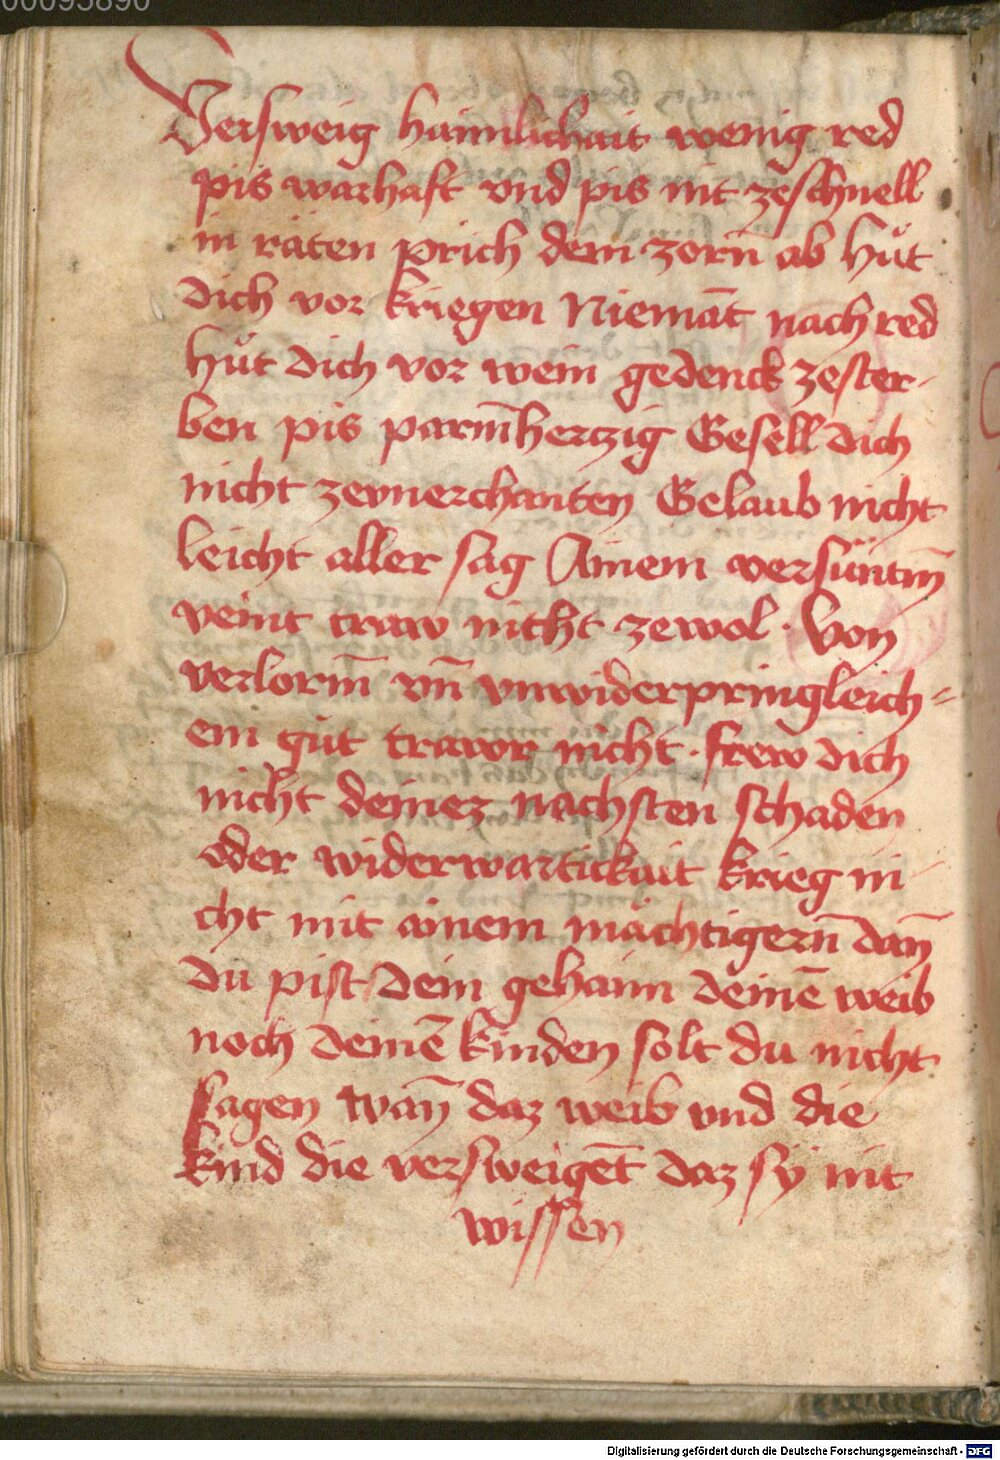 00095890
Versweig haimlichait wenig red
pis warhaft vnd pis nit zeschnell
in räten prich dem zorn̄ ab Hüt
dich vor kriegen Niemāt nach red
hüt dich vor wein gedenck zester-
ben pis parm̄hertzig Gesell dich
nicht zevnerchanten Gelaub nicht
leicht aller sag Ainem versüntm̄
veint traw nicht zewol · Von
verlorm̄ vn̄ vnwiderpringleich=
em güt trawr nicht · frew dich
nicht deinez nachsten schaden
oder widerwartickait krieg ni
cht mit ainem mächtigern̄ dan̄
du pist Dein gehaim deinē weib
noch deinē kinden solt du nicht
sagen wan̄ daz weib vnd die
kind die versweigēt daz sy nit
wissen
Digitalisierung gefördert durch die Deutsche Forschungsgemeinschaft - DFG